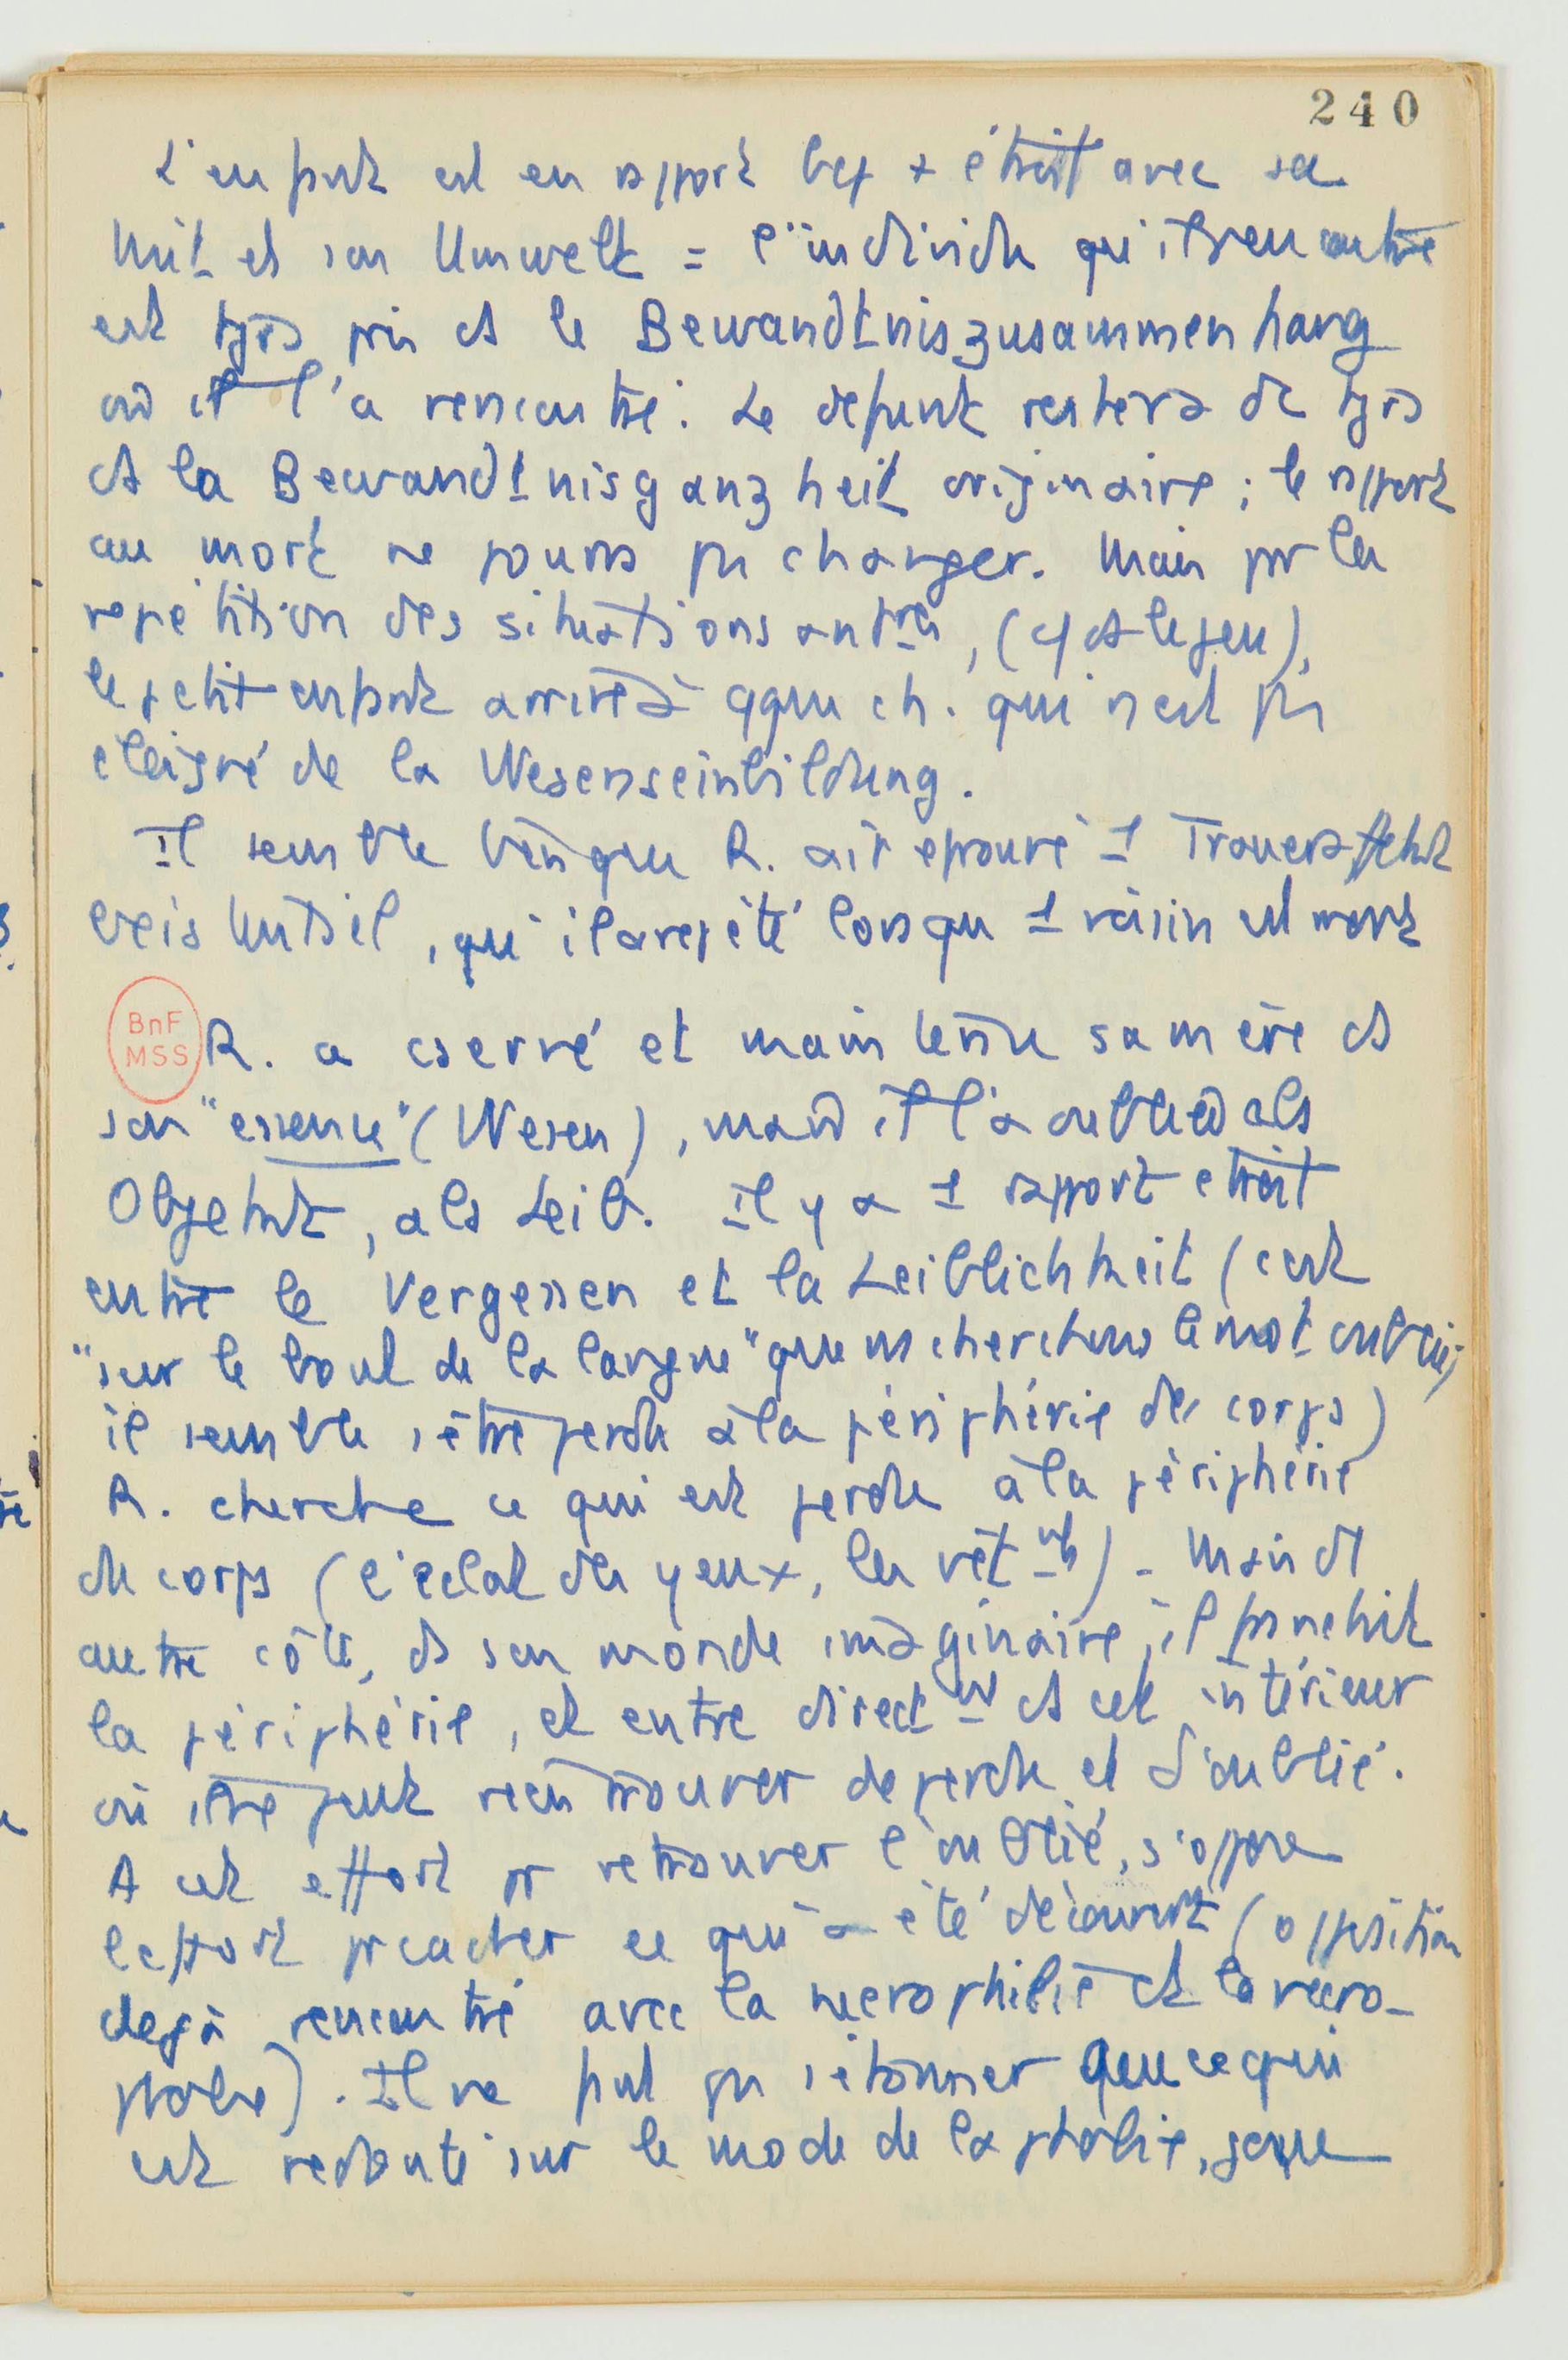 240
L'enfant est en rapport bcp + étroit avec sa
Mit et son Umwelt = l'individu qu'il rencontre
est tjrs pris ds le Bewandtniszusammenhang
où il l'a rencontré. Le défunt restera dc tjrs
ds la Bewandtnisganzheit originaire ; le rapport
au mort ne pourra pas changer. Mais pr la
répétition des situations antres, (cf ds le jeu),
le petit enfant arrive à qque ch. qui n'est pas
éloigné de la Wesenseinbildung.
Il semble bien que R. ait éprouvé 1 Traueraffekt
, qu'il a répété lorsqu 1 voisin est mort
BnF
MSS
R. a cservé et maintenu sa mère ds
son "essence" (Wesen), mais il l'a oubliée als
Objekt, als Leib. Il y a 1 rapport étroit
entre le Vergessen et la Leiblichkeit (c'est
"sur le bout de la langue" que ns cherchons le mot oublié,
il semble s'être perdu à la périphérie du corps)
R. cherche ce qui est perdu à la périphérie
du corps (l'éclat des yeux, les vêtmts) - Mais d'1
autre côté, ds son monde imaginaire, il franchit
la périphérie, et entre directmt ds cet intérieur
où il ne peut rien trouver de perdu et d'oublié.
A cet effort pr retrouver l'oublié, s'oppose
l'effort pr cacher ce qui a été découvert (opposition
déjà rencontré avec la nécrophilie et la nécro-
phobie). Il ne faut pas s'étonner que ce qui
est redouté sur le mode de la phobie,